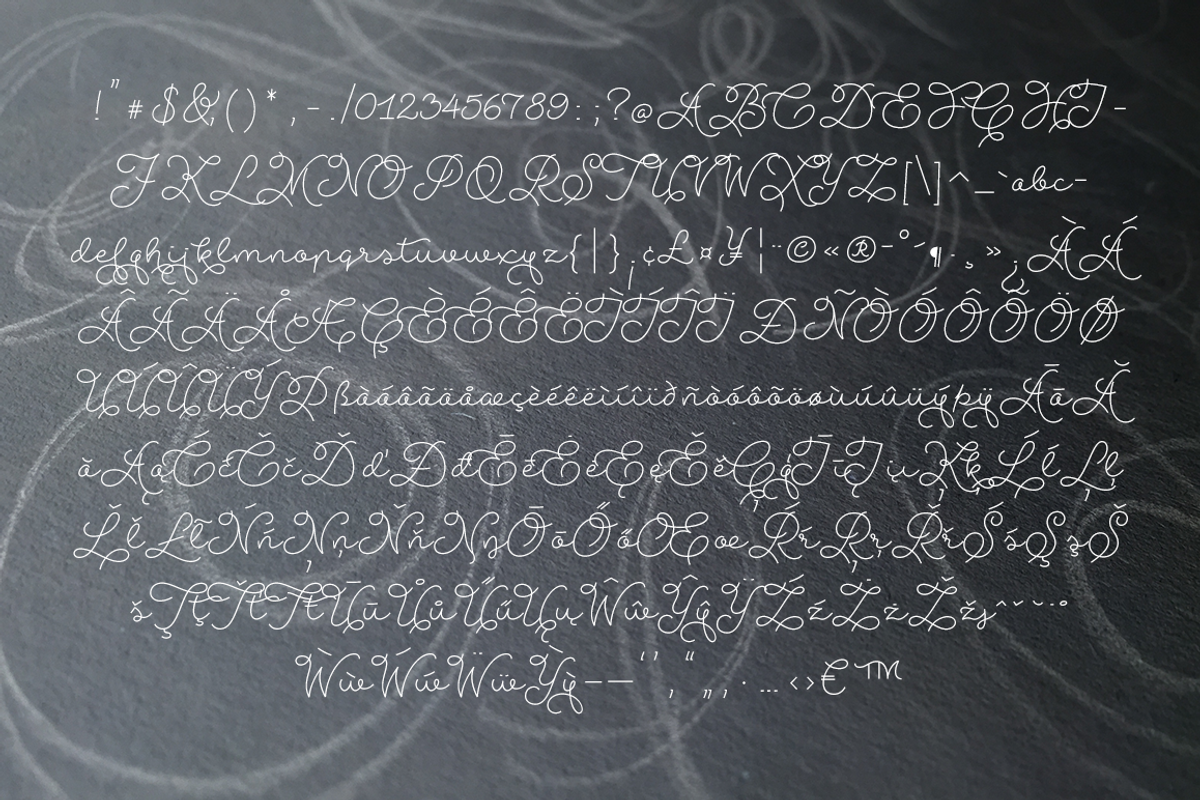 !"#$&()*,-./0123456789:;?@ABCDEFGHI-
JKLMNOPQRSTUVWXYZ[\]^_`abc-
defghijklmnopqrstuvwxyz{|}¡¢£¤¥¦¨©«®¯°´¶·¸»¿ÀÁ
ÂÃÄÅÆÇÈÉÊËÌÍÎÏÐÑÒÓÔÕÖØ
ÙÚÛÜÝÞßàáâãäåæçèéêëìíîïðñòóôõöøùúûüýþÿĀāĂ
ăĄąĆćČčĎďĐđĒēĖėĘęĚěĢģĪīĮįĶķĹĺĻļ
ĽľŁłŃńŅņŇňŊŋŌōŐőŒœŔŕŖŗŘřŚśŞşŠ
šŢţŤťŦŧŪūŮůŰűŲųŴŵŶŷŸŹźŻżŽžſˆˇ˘˙˚
ẀẁẂẃẄẅỲỳ–—‘’‚“„,·…‹›€™